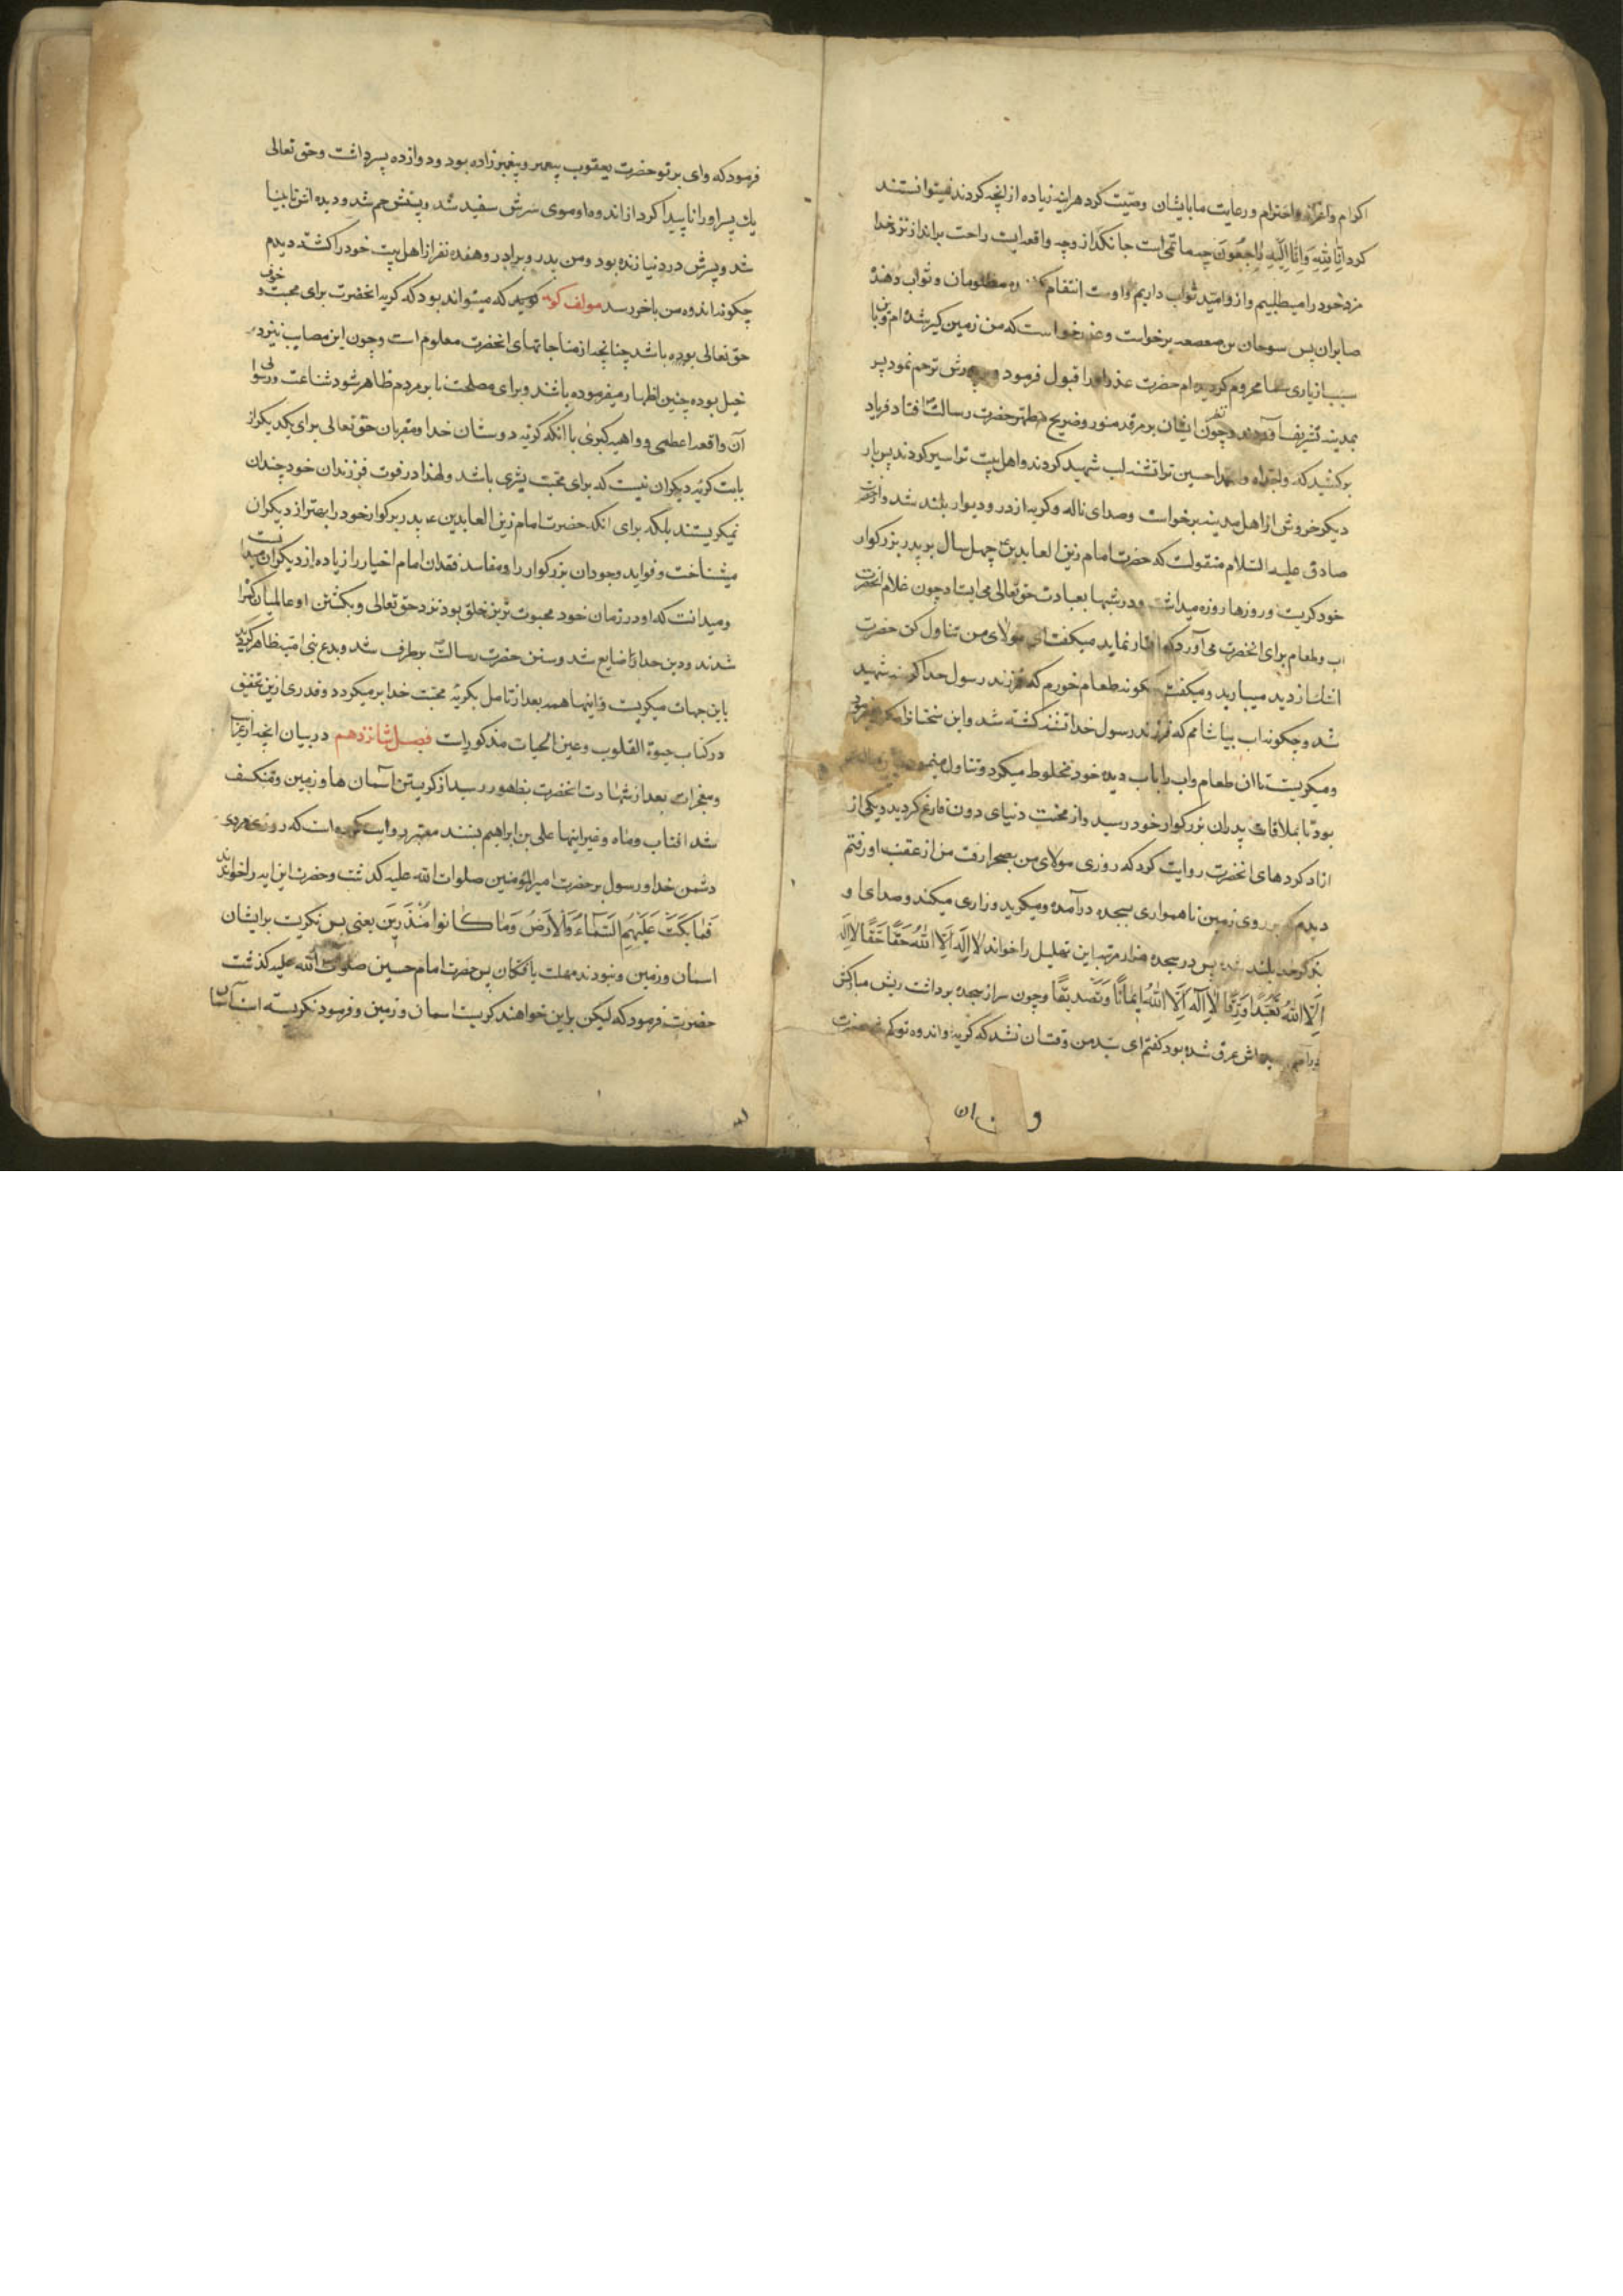 اکرام و اعزاز و احترام و رعایت ما بایشان وصیّت کرد هراینه زیاده از اینچه کردند نمیتوانستند
کرد اِنّا لِلّهِ وَاِنّا اِلَیْهِ رَاجِعُونَ چه ماتمی است جانکداز و چه واقعه ایست راحت برانداز از نزد خدا
مزد خود را میطلبیم و از او امّید ثواب داریم و اوست انتقام مظلومان و ثواب دهندۀ
صابران پس سوحان بن صعصعه برخواست و عذر خواست که من زمین کیر شده‌ام و باین
سبب از یاری شما محروم کردیده‌ام حضرت عذر او را قبول فرمود و بر پدرش ترحم نمود پس
بمدینه تشریف آوردند و چون نظر ایشان بر مرقد منور و ضریح مطهر حضرت رسالت افتاد فریاد
برکشید که واجدّاه حسین ترا تشنه لب شهید کردند و اهل بیت ترا اسیر کردند پس بار
دیکر خروش از اهل مدینه برخواست و صدای ناله و کریه از در و دیوار بلند شد و از حضرت
صادق علیه السّلام منقولست که حضرت امام زین العابدین چهل سال بر پدر بزرکوار
خود کریست و روزها روزه میداشت و در شبها بعبادت حق تعالی می‌ایستاد چون غلام انحضرت
اب و طعام برای انحضرت می‌آورد که افطار نماید میکفت ای مولای من تناول کن حضرت
اشک از دید میبارید و میکفت چکونه طعام خورم که فرزند رسول خدا کرسنه شهید
شد و چکونه اب بیاشامم که فرزند رسول خدا تشنه کشته شد و این سخنانرا مکرر میفرمود
و میکریست تا ان طعام و اب را باب دیده خود مخلوط میکرد و تناول مینمود
بود تا بملاقات پدران بزرکوار خود رسید و از محنت دنیای دون فارغ کردید و یکی از
ازاد کردهای انحضرت روایت کرد که روزی مولای من بصحرا رفت من از عقب او رفتم
دیدم که بر روی زمین ناهمواری بسجده درآمده و میکرید و زاری میکند و صدای او
بذکر خدا بلند شده پس در سجده هزار مرتبه این تهلیل را خواند لا اِلهَ اِلَّا اللّهُ حَقّاً حَقّاً لا اِلهَ
اِلَّا اللّهُ تَعَبُّداً وَرِقّاً لا اِلهَ اِلَّا اللّهُ اِیمَاناً وَتَصْدِیقاً و چون سر از سجده برداشت ریش مبارکش
غرق شده بود کفتم ای سیّد من وقت ان نشد که کریه و اندوه تو کم شود حضرت
فرمود که وای بر تو حضرت یعقوب پیغمبر و پیغمبر زاده بود و دوازده پسر داشت و حق تعالی
یك پسر او را ناپیدا کرد از اندوه او موی سرش سفید شد و پشتش خم شد و دیده اش نابینا
شد و پسرش در دنیا زنده بود و من پدر و برادر و هفده نفر از اهل بیت خود را کشته دیدم
چکونه اندوه من باخر رسد مولف کوید که میتواند بود که کریه انحضرت برای محبت و خوف
حق تعالی بوده باشد چنانچه از مناجاتهای انحضرت معلوم است و چون این مصایب نیز در
خیل بوده چنین اظهار میفرموده باشند و برای مصلحت تا بر مردم ظاهر شود شناعت و رسوائی
آن واقعه اعظمی و واهیه کبری با انکه کریه دوستان خدا و مقربان حق تعالی برای یکدیکر از
بابت کریه دیکران نیست که برای محبت بشری باشد و لهذا در فوت فرزندان خود چندان
نمیکریستند بلکه برای انکه حضرت امام زین العابدین ع پدر بزرکوار خود را بهتر از دیکران
میشناخت و فواید وجود ان بزرکوار را و مفاسد فقدان امام اخیار را زیاده از دیکران میدانست
و میدانست که او در زمان خود محبوبت‌ترین خلق بود نزد حق تعالی و بکشتن او عالمیان کمراه
شدند و دین خدا ضایع شد و سنن حضرت رسالت برطرف شد و بدع بنی امیّه ظاهر کردید
باین جهات میکریست و اینها همه بعد از تامل بکریه محبّت خدا بر میکردد و قدری ازین تحقیق
در کتاب حیوة القلوب و عین الحیات مذکور است فصل شانزدهم در بیان انچه از غرایب
و معجزات بعد از شهادت انحضرت بظهور رسید از کریستن آسمان ها و زمین و منکسف
شد افتاب و ماه و غیر اینها علی بن ابراهیم بسند معتبر روایت کرده است که روزی مردی
دشمن خدا و رسول بر حضرت امیرالمؤمنین صلوات اللّه علیه کذشت و حضرت این ایه را خواند
فَمٰا بَکَتْ عَلَیْهِمُ السَّمٰاءُ وَالْاَرْضُ وَمٰا کٰانُوا مُنْذَرِینَ یعنی پس نکریست بر ایشان
اسمان و زمین و نبودند مهلت یافتکان پس حضرت امام حسین صلوات اللّه علیه کذشت
حضرت فرمود که لیکن بر این خواهند کریست اسمان و زمین و فرمود نکریسته است آسمان